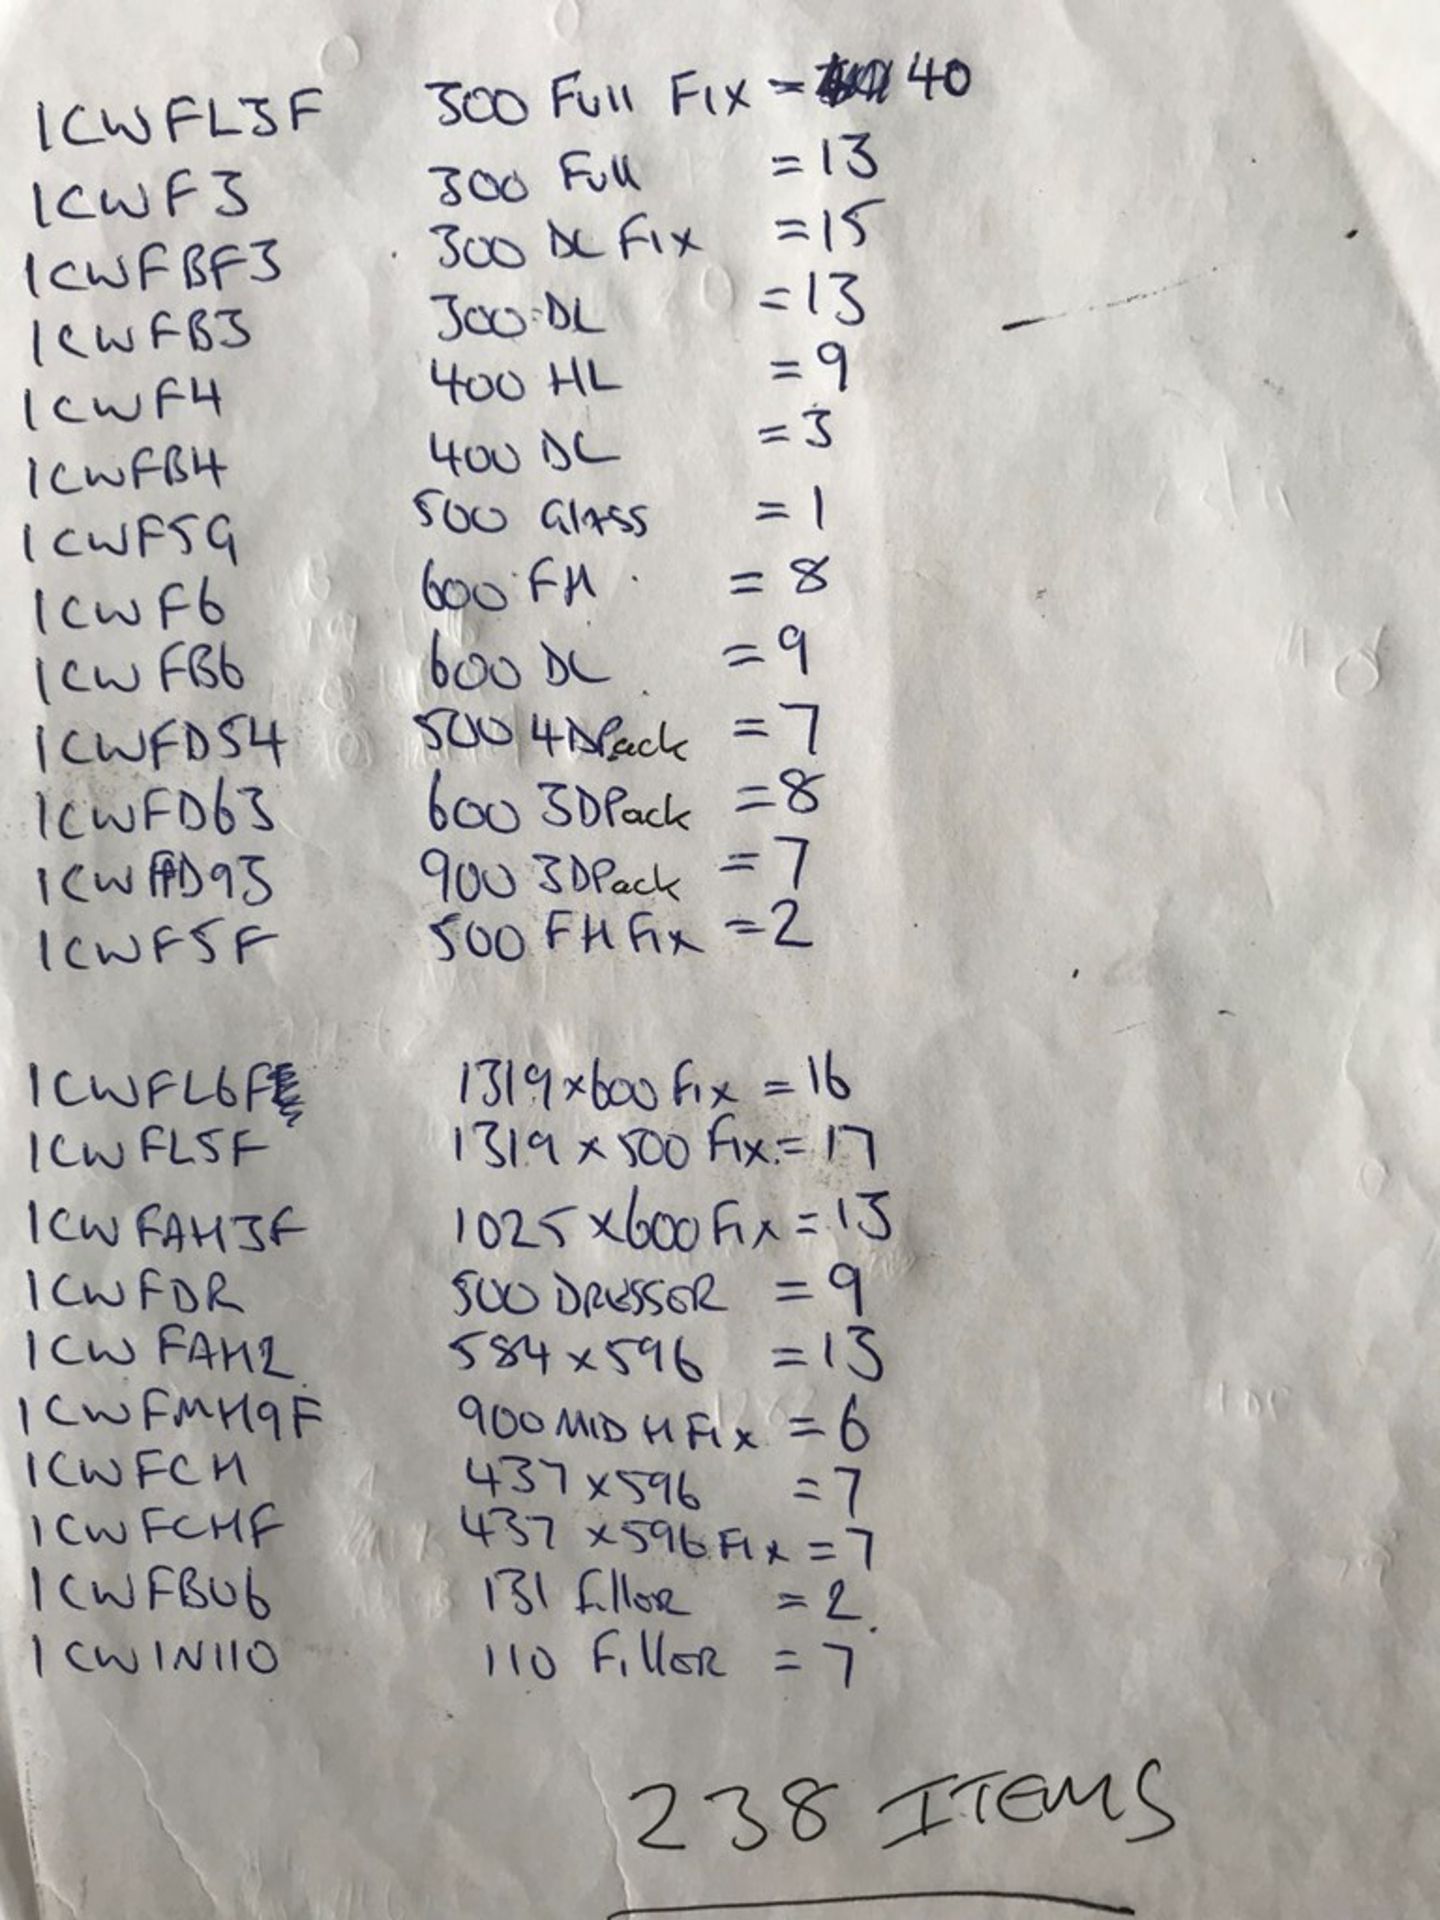 1CWFL3F 300 Full Fix - 40
1CWF3 300 Full = 13
1CWFBF3 300 DL Fix = 15
1CWFB3 300 DL = 13
1CWF4 400 HL = 9
1CWFB4 400 DL = 3
1CWF5G 500 Glass = 1
1CWF6 600 FH = 8
1CWFB6 600 DL = 9
1CWFD54 500 4DPack = 7
1CWFD63 600 3DPack = 8
1CWFD93 900 3DPack = 7
1CWF5F 500 FH Fix = 2
1CWFL6F 1319x600 Fix = 16
1CWFL5F 1319 x 500 Fix = 17
1CWFAH3F 1025 x 600 Fix = 13
1CWFDR 500 DRESSER = 9
1CWFAH2 584 x 596 = 13
1CWFMH9F 900 MID H Fix = 6
1CWFCH 437 x 596 = 7
1CWFCHF 437 x 596 Fix = 7
1CWFBU6 131 Filler = 2
1CWIN110 110 Filler = 7
238 ITEMS